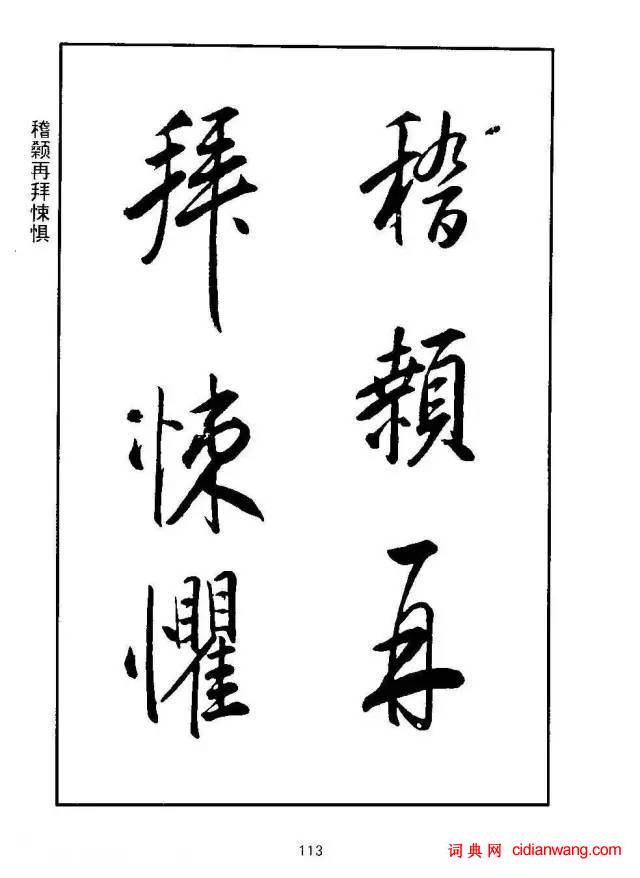 稽顙再
拜悚懼
稽颡再拜悚惧
113
词典网 cidianwang.com